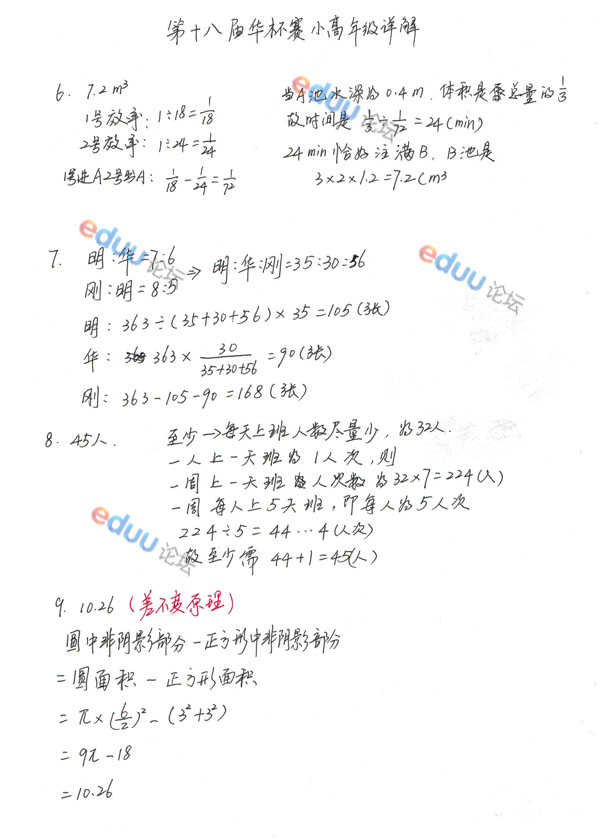 第十八届华杯赛小高年级详解
6. 7.2m³
1号效率: 1÷18=1/18
2号效率: 1÷24=1/24
1号进A2号出A: 1/18-1/24=1/72
当A池水深为0.4m. 体积是总量的1/3
故时间是 1/3÷1/72=24(min)
24min恰好注满B. B池是
3×2×1.2=7.2(m³
7. 明:华=7:6
刚:明=8:5
⇒ 明:华:刚=35:30:56
明: 363÷(35+30+56)×35=105(张)
华: 363×30/(35+30+56)=90(张)
刚: 363-105-90=168(张)
8. 45人.
至少→每天上班人数尽量少, 为32人.
一人上一天班为1人次, 则
一周上一天班 人次数为32×7=224(人)
一周每人上5天班, 即每人为5人次
224÷5=44…4(人次)
故至少需 44+1=45(人)
9. 10.26 (差不变原理)
圆中非阴影部分-正方形中非阴影部分
=圆面积-正方形面积
=π×(6/2)²-(3²+3²)
=9π-18
=10.26
eduu论坛
eduu论坛
eduu论坛
eduu论坛